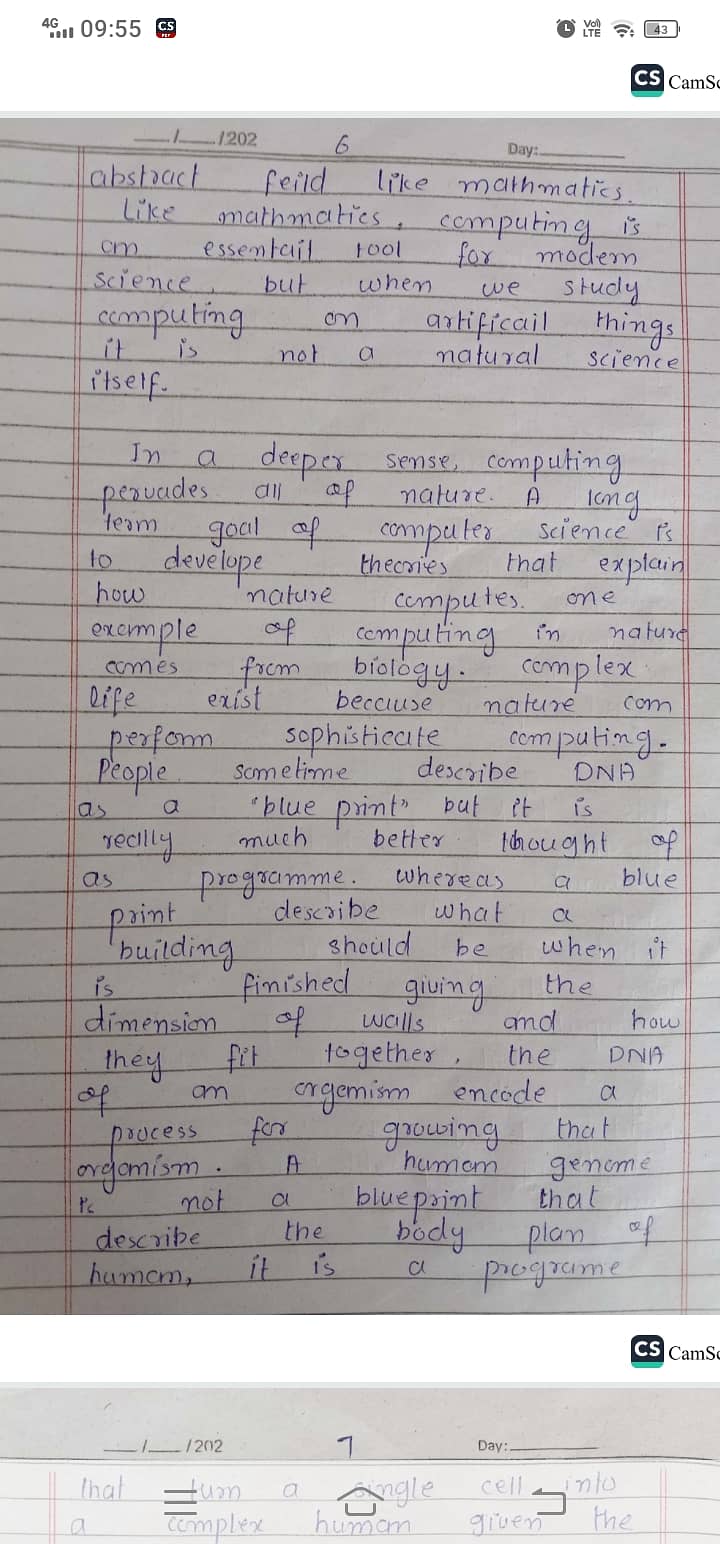 4G 09:55 CS PDF Vol) LTE 43
CS CamSc
__/__/202 6 Day:
abstract feild like mathmatics.
Like mathmatics, computing is
an essentail tool for modern
science, but when we study
computing an artificail things
it is not a natural science
itself.
In a deeper sense, computing
pervades all of nature. A long
term goal of computer science is
to develope theories that explain
how nature computes. one
example of computing in nature
comes from biology. complex
life exist because nature can
perform sophisticate computing.
People sometime describe DNA
as a "blue print" but it is
really much better thought of
as programme. whereas a blue
print describe what a
building should be when it
is finished giving the
dimension of walls and how
they fit together, the DNA
of an orgamism encode a
process for growing that
orgamism. A human genome
is not a blueprint that
describe the body plan of
human, it is a programe
CS CamSc
__/__/202 7 Day:
that turn a single cell into
a complex human given the